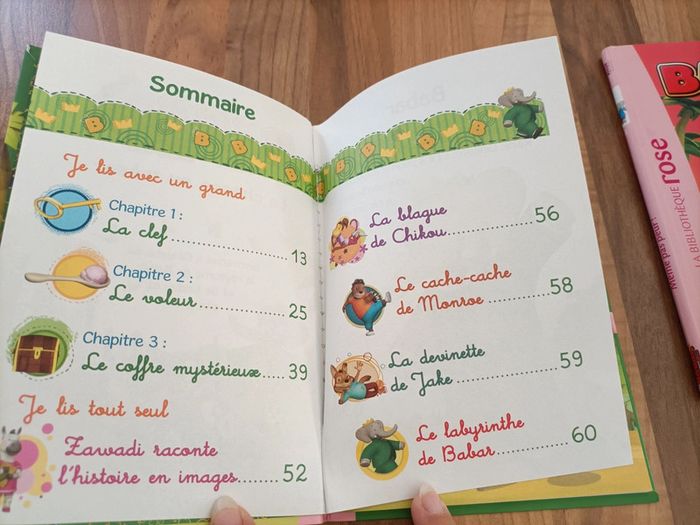 Sommaire
B
B
B
B
Je lis avec un grand
Chapitre 1 :
La clef..................13
Chapitre 2 :
Le voleur..................25
Chapitre 3 :
Le coffre mystérieux.....39
Je lis tout seul
Zawadi raconte
l'histoire en images........52
La blague
de Chikou..............56
Le cache-cache
de Monroe..............58
La devinette
de Jake..................59
Le labyrinthe
de Babar..............60
LA BIBLIOTHÈQUE rose
Même pas peur !